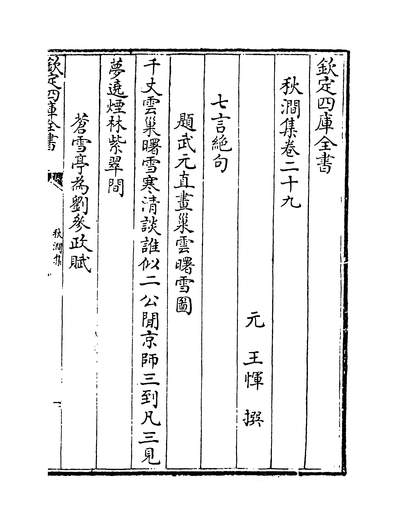 欽定四庫全書
秋澗集卷二十九
元 王惲 撰
七言絕句
題武元直畫巢雲曙雪圖
千丈雲巢曙雪寒清談誰似二公閒京師三到凡三見
夢遶煙林紫翠間
蒼雪亭為劉參政賦
欽定四庫全書
秋澗集
一